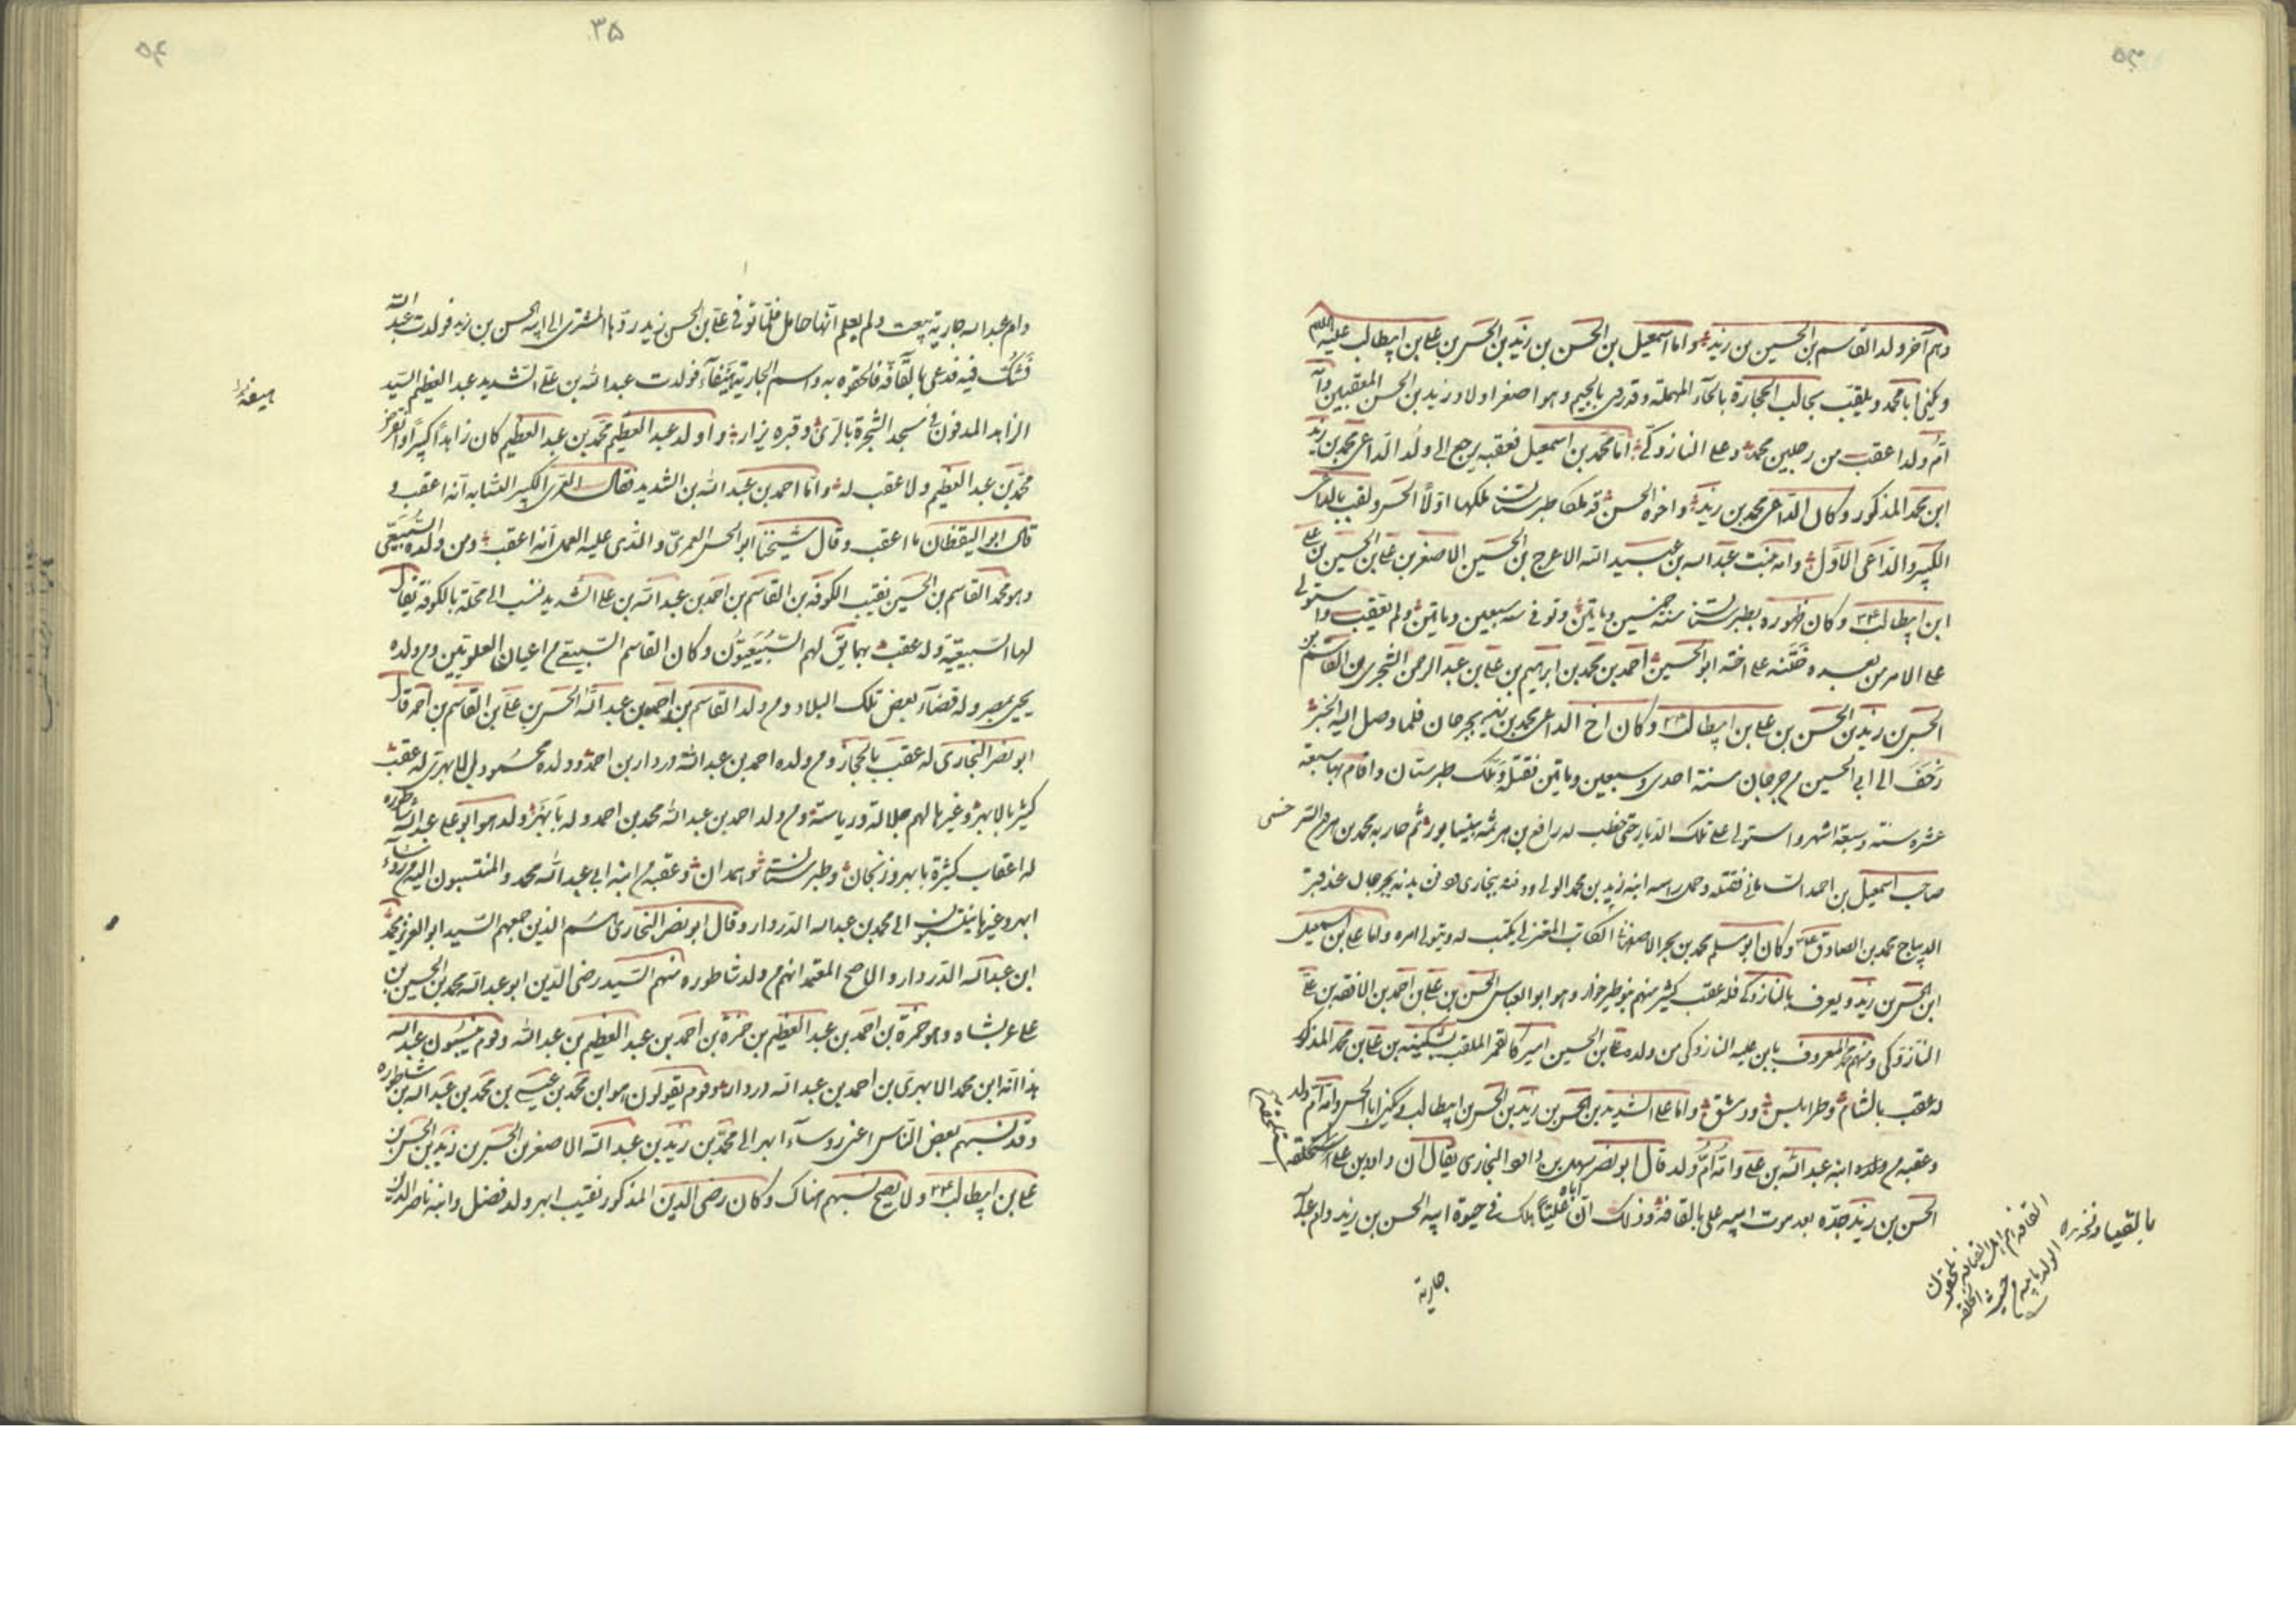 ۵۳
وهم آخر ولد القاسم بن الحسين بن زيد واما اسمعيل بن الحسن بن زيد بن الحسن بن علي بن ابيطالب عليه السلام
ويكنى ابا محمد ويلقب بجالب الحجارة بالحاء المهملة وقد روى بالجيم وهو اصغر اولاد زيد بن الحسن المعقبين وامه
ام ولد اعقب من رجلين محمد وعلي النازوكى اما محمد بن اسمعيل فعقبه يرجع الى ولد الداعى محمد بن زيد
ابن محمد المذكور وكان الداعى محمد بن زيد واخوه الحسن قد ملكا طبرستان ملكها اولا الحسن ولقب بالداعى
الكبير والداعى الاول وامه بنت عبد الله بن عبيد الله الاعرج بن الحسين الاصغر بن علي بن الحسين بن علي
ابن ابيطالب وكان ظهوره بطبرستان سنة خمسين وماتين وتوفى سنه سبعين وماتين ولم يعقب واستولى
على الامر من بعده ختنه على اخته ابو الحسين احمد بن محمد بن ابرهيم بن علي بن عبد الرحمن الشجرى بن القاسم بن
الحسن بن زيد بن الحسن بن علي بن ابيطالب وكان اخ الداعى محمد بن زيد بجرجان فلما وصل اليه الخبر
زحف الى ابى الحسين من جرجان سنة احدى وسبعين وماتين فقتله وملك طبرستان واقام بها سبعة
عشرة سنة وسبعة اشهر واستولى على تلك الديار حتى خطب له رافع بن هرثمة بنيسابور ثم حاربه محمد بن هرون السرخسى
صاحب اسمعيل بن احمد السامانى فقتله وحمل راسه ابنه زيد بن محمد الى ودفنه ببخارى دفن بدنه بجرجان عند قبر
الديباج محمد بن الصادق وكان ابو مسلم محمد بن بحر الاصفهانى الكاتب المعتزلى يكتب له ويتولى امره واما علي بن اسمعيل
ابن الحسن بن زيد ويعرف بالنازوكى فله عقب كثير منهم بنو طيرخوار وهو ابو العباس الحسن بن علي بن احمد بن الافقه بن علي
النازوكى ومنهم محمد المعروف بابن علية النازوكى من ولده علي بن الحسين اميركا لقمر الملقب بشكينه بن علي بن محمد المذكور
له عقب بالشام وطرابلس ودمشق واما علي الشديد بن الحسن بن زيد بن الحسن بن ابيطالب ويكنى ابا الحسن وامه ام ولد
وعقبه من ولده ابنه عبد الله بن علي وامه ام ولد قال ابو نصر سهل بن داود البخارى يقال ان داود بن علي استلحقه
الحسن بن زيد جده بعد موت ابيه علي بالقافة وذلك ان اباه عليا هلك فى حيوة ابيه الحسن بن زيد وام عبد الله
جارية
۵۴
۳۵
وام عبد الله جارية بيعت ولم يعلم انها حامل فلما توفى علي بن الحسن بن زيد ردها المشترى الى ابيه الحسن بن زيد فولدت عبد الله
فشك فيه فدعى بالقافة فالحقوه به واسم الجارية هيفاء فولدت عبد الله بن علي الشديد عبد العظيم السيد
الزاهد المدفون فى مسجد الشجرة بالرى وقبره يزار واولد عبد العظيم محمد بن عبد العظيم كان زاهدا كبيرا وانقرض
محمد بن عبد العظيم ولا عقب له واما احمد بن عبد الله بن الشديد فقال العمرى الكبير النسابه انه اعقب و
قال ابو اليقظان ما اعقب وقال شيخنا ابو الحسن العمرى والذى عليه العمل انه اعقب ومن ولده السبيعى
وهو محمد القاسم بن الحسين نقيب الكوفة بن القاسم بن احمد بن عبد الله بن علي الشديد نسب الى محلة بالكوفة يقال
لها السبيعية وله عقب بها يق لهم السبيعيون وكان القاسم السبيعى من اعيان العلويين ومن ولده
يحيى بمصر وله قضاء بعض تلك البلاد ومن ولد القاسم بن احمد بن عبد الله الحسن بن علي بن القاسم بن احمد قال
ابو نصر البخارى له عقب بالحجاز ومن ولده احمد بن عبد الله دردار بن احمد وولده محمود الابهرى له عقب
كثير بالابهر وغيرها لهم جلالة ورياسة ومن ولد احمد بن عبد الله محمد بن احمد وله بابهر ولد هو ابو علي عبد الله شاطوره
له اعقاب كثيرة بابهر وزنجان وطبرستان وهمدان وعقبه من ابنه ابى عبد الله محمد والمنتسبون اليه من رؤساء
ابهر وغيرها ينتسبون الى محمد بن عبد الله الدردار وقال ابو نصر البخارى هم الذين جمعهم السيد ابو العز محمد
ابن عبد الله الدردار والاصح المعتمد انهم من ولد شاطوره منهم السيد رضى الدين ابو عبد الله محمد بن الحسين بن
علي عربشاه وهو حمزة بن احمد بن عبد العظيم بن حمزة بن احمد بن عبد العظيم بن عبد الله وقوم ينسبون عبد الله
هذا انه ابن محمد الابهرى بن احمد بن عبد الله دردار وقوم يقولون هو ابن محمد بن عيسى بن محمد بن عبد الله بن شاطوره
وقد نسبهم بعض الناس اعنى روساء ابهر الى محمد بن زيد بن عبد الله الاصغر بن الحسن بن زيد بن الحسن بن
علي بن ابيطالب ولا يصح نسبهم هناك وكان رضى الدين المذكور نقيب ابهر ولد فضل وابنه ناصر الدين